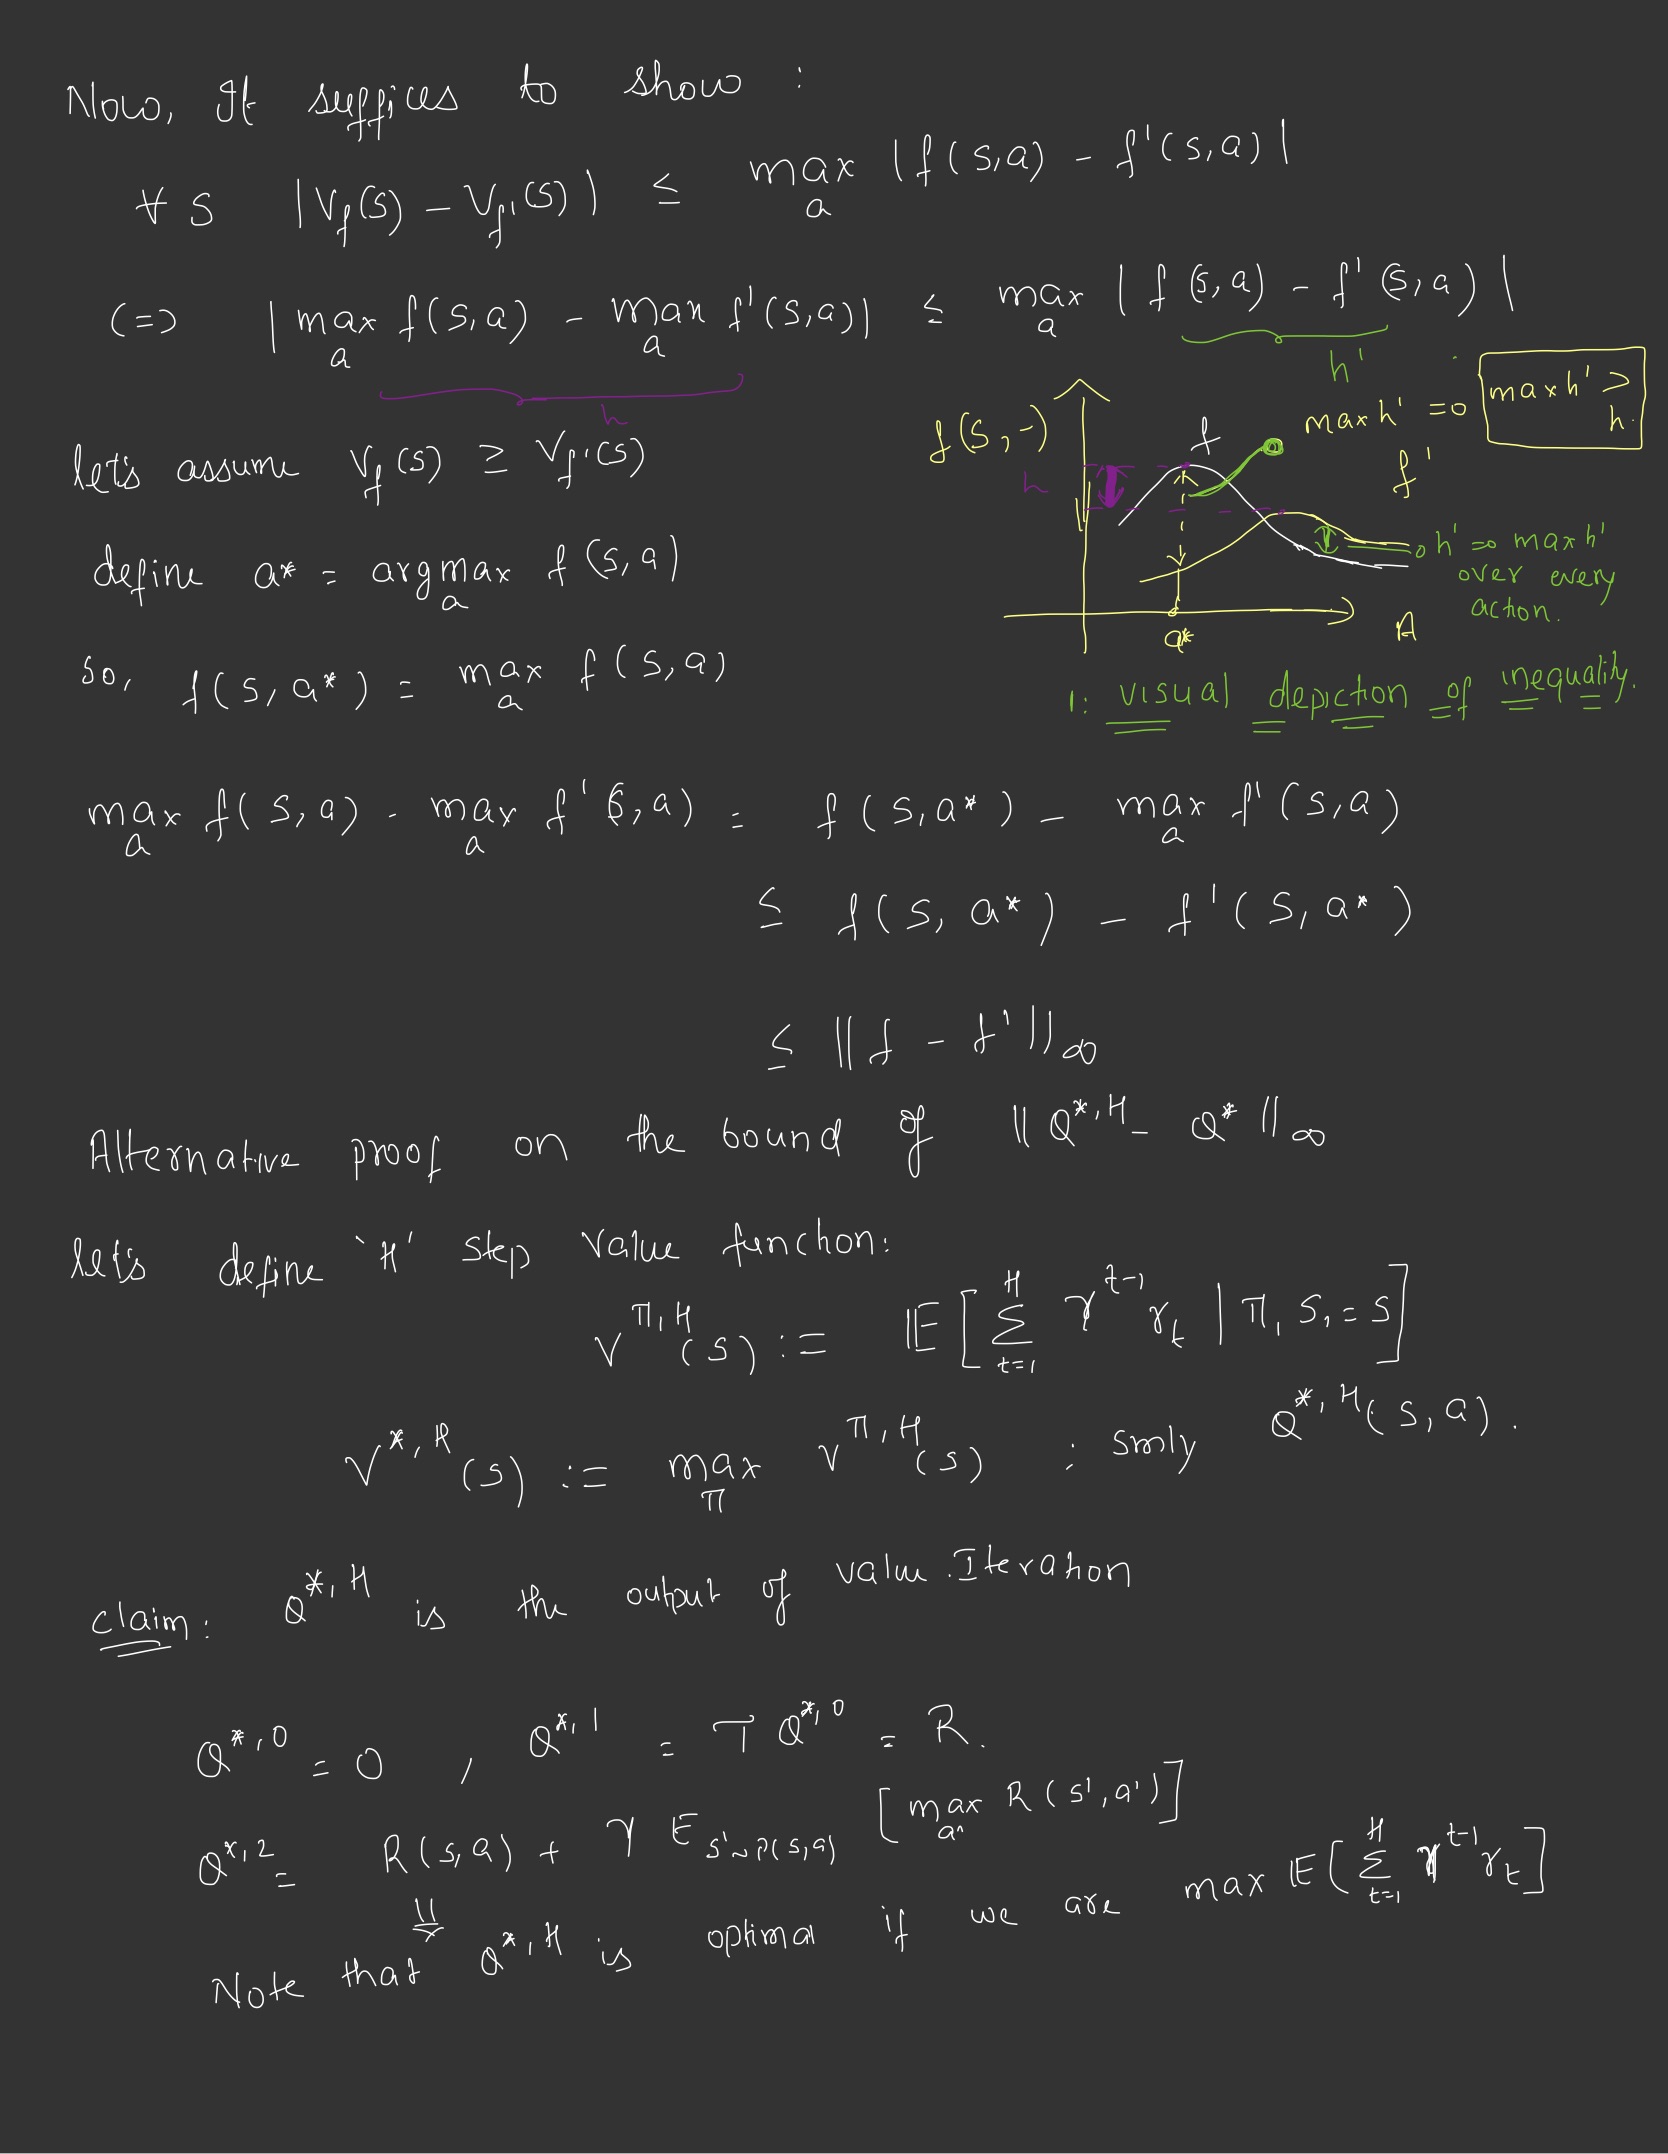 Now, It suffices to show :
∀ s |V_f(s) - V_f'(s)| ≤ max_a |f(s,a) - f'(s,a)|
(=) |max_a f(s,a) - max_a f'(s,a)| ≤ max_a |f(s,a) - f'(s,a)|
h
h'
let's assume V_f(s) ≥ V_f'(s)
define a* = argmax_a f(s,a)
so, f(s,a*) = max_a f(s,a)
f(s,-)
h
f
max h' =0
max h' > h.
f'
h' =0 max h'
over every
action.
a*
A
1: visual depiction of inequality.
max_a f(s,a) - max_a f'(s,a) = f(s,a*) - max_a f'(s,a)
≤ f(s,a*) - f'(s,a*)
≤ ||f - f'||_∞
Alternative proof on the bound of ||Q^{*,H} - Q*||_∞
let's define 'H' step value function:
V^{π,H}(s) := E[Σ_{t=1}^{H} γ^{t-1} r_t | π, s_1 = s]
V^{*,H}(s) := max_π V^{π,H}(s) ; smly Q^{*,H}(s,a).
claim: Q^{*,H} is the output of value Iteration
Q^{*,0} = 0 , Q^{*,1} = T Q^{*,0} = R.
Q^{*,2} = R(s,a) + γ E_{s'~P(s,a)} [max_{a'} R(s',a')]
Note that Q^{*,H} is optimal if we are max E[Σ_{t=1}^{H} γ^{t-1} r_t]